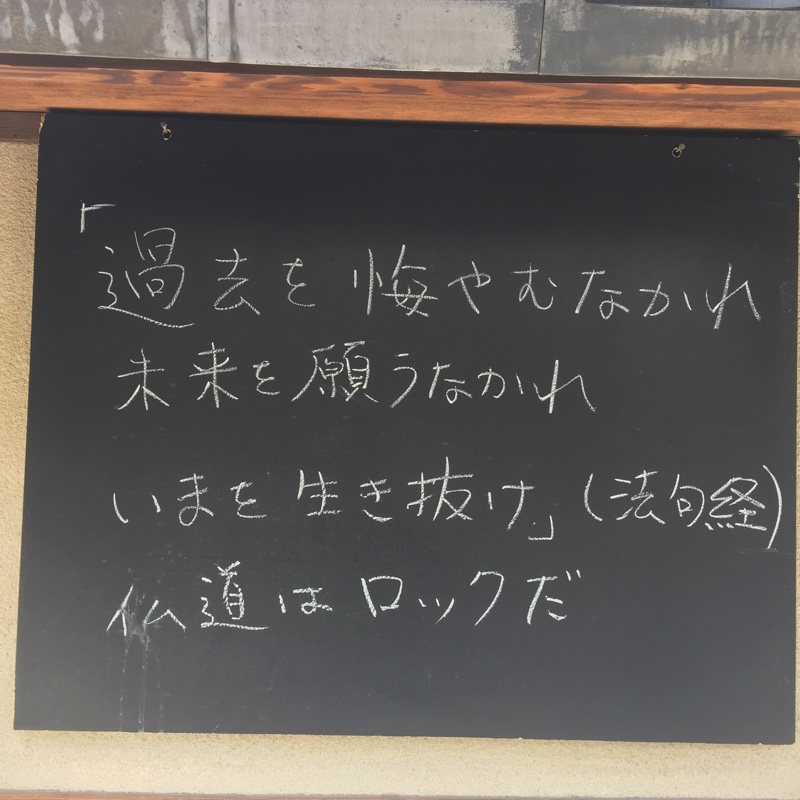 「過去を悔やむなかれ
未来を願うなかれ
いまを生き抜け」(法句経)
仏道はロックだ